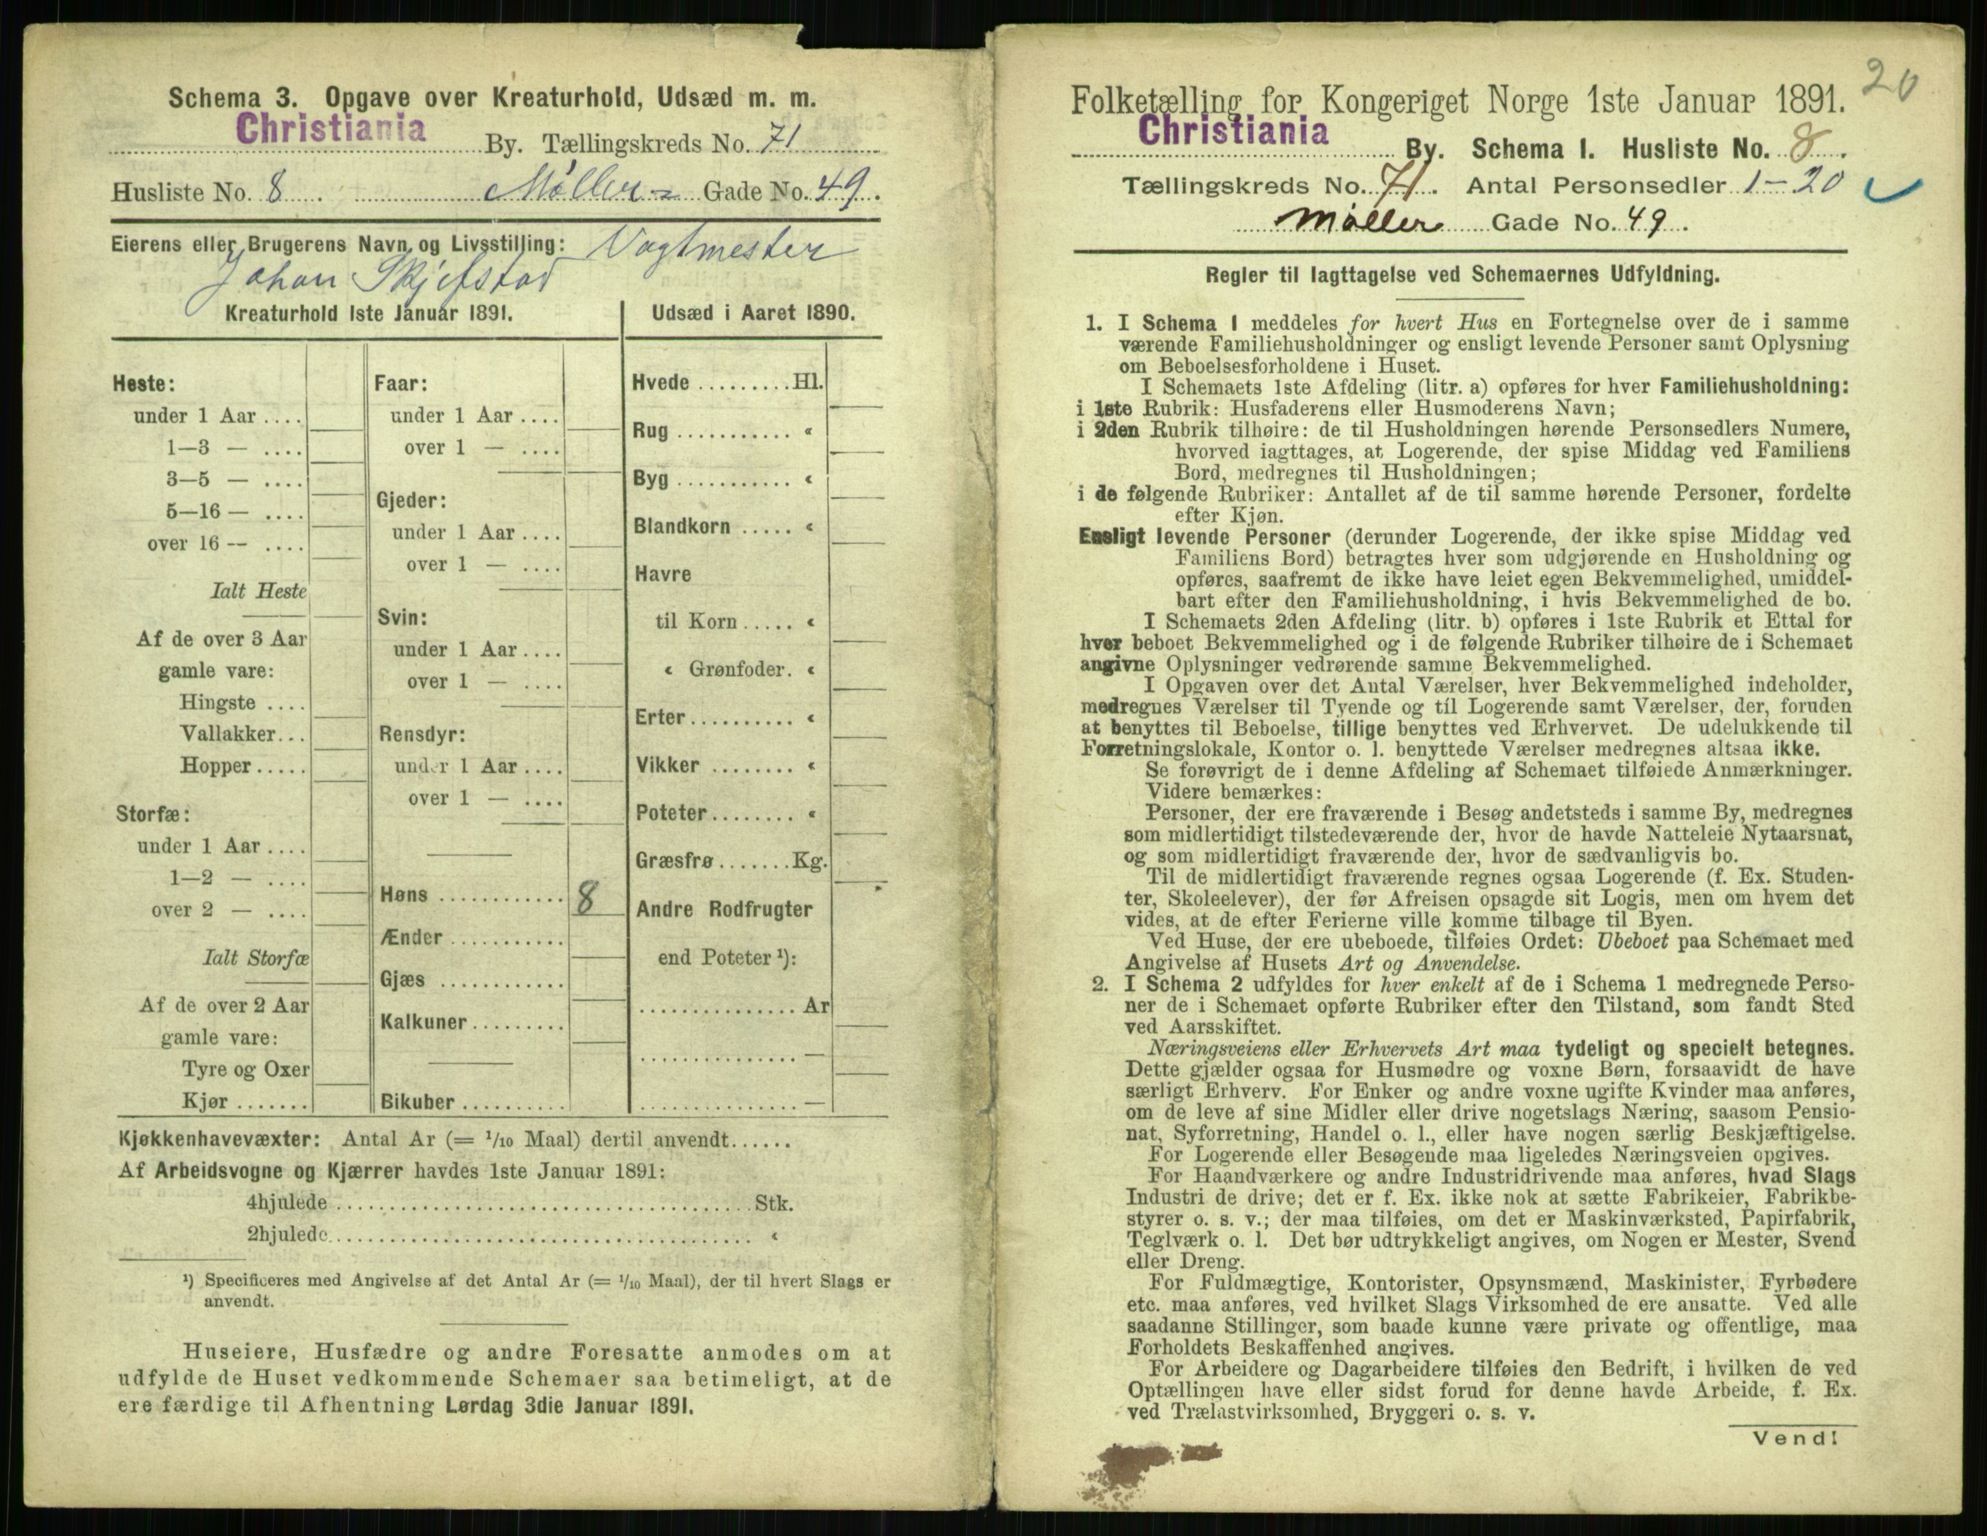 Schema 3. Opgave over Kreaturhold, Udsæd m. m.
Christiania By. Tællingskreds No. 71
Husliste No. 8 Møller= Gade No. 49.
Eierens eller Brugerens Navn og Livsstilling: Vagtmester
Johan Skjefstad
Kreaturhold 1ste Januar 1891.
Heste:
under 1 Aar ....
1—3 — ....
3—5 — ....
5—16 — ....
over 16 — ....
Ialt Heste
Af de over 3 Aar
gamle vare:
Hingste ....
Vallakker...
Hopper.....
Storfæ:
under 1 Aar ....
1—2 — ....
over 2 — ....
Ialt Storfæ
Af de over 2 Aar
gamle vare:
Tyre og Oxer
Kjør .......
Faar:
under 1 Aar ....
over 1 — ....
Gjeder:
under 1 Aar ....
over 1 — ....
Svin:
under 1 Aar ....
over 1 — ....
Rensdyr:
under 1 Aar ....
over 1 — ....
Høns ............ 8
Ænder ...........
Gjæs ............
Kalkuner.........
Bikuber ..........
Udsæd i Aaret 1890.
Hvede .........Hl.
Rug ........... «
Byg ........... «
Blandkorn ..... «
Havre
til Korn ..... «
« Grønfoder. «
Erter.......... «
Vikker ........ «
Poteter........ «
Græsfrø.......Kg.
Andre Rodfrugter
end Poteter ¹):
............... Ar
............... —
............... —
Kjøkkenhavevæxter: Antal Ar (= 1/10 Maal) dertil anvendt......
Af Arbeidsvogne og Kjærrer havdes 1ste Januar 1891:
4hjulede ......................................Stk.
2hjulede....................................... «
¹) Specificeres med Angivelse af det Antal Ar (= 1/10 Maal), der til hvert Slags er
anvendt.
Huseiere, Husfædre og andre Foresatte anmodes om at
udfylde de Huset vedkommende Schemaer saa betimeligt, at de
ere færdige til Afhentning Lørdag 3die Januar 1891.
20
Folketælling for Kongeriget Norge 1ste Januar 1891.
Christiania By. Schema I. Husliste No. 8.
Tællingskreds No. 71. Antal Personsedler 1-20
Møller Gade No. 49.
Regler til Iagttagelse ved Schemaernes Udfyldning.
1. I Schema 1 meddeles for hvert Hus en Fortegnelse over de i samme
værende Familiehusholdninger og ensligt levende Personer samt Oplysning
om Beboelsesforholdene i Huset.
I Schemaets 1ste Afdeling (litr. a) opføres for hver Familiehusholdning:
i 1ste Rubrik: Husfaderens eller Husmoderens Navn;
i 2den Rubrik tilhøire: de til Husholdningen hørende Personsedlers Numere,
hvorved iagttages, at Logerende, der spise Middag ved Familiens
Bord, medregnes til Husholdningen;
i de følgende Rubriker: Antallet af de til samme hørende Personer, fordelte
efter Kjøn.
Ensligt levende Personer (derunder Logerende, der ikke spise Middag ved
Familiens Bord) betragtes hver som udgjørende en Husholdning og
opføres, saafremt de ikke have leiet egen Bekvemmelighed, umiddel-
bart efter den Familiehusholdning, i hvis Bekvemmelighed de bo.
I Schemaets 2den Afdeling (litr. b) opføres i 1ste Rubrik et Ettal for
hver beboet Bekvemmelighed og i de følgende Rubriker tilhøire de i Schemaet
angivne Oplysninger vedrørende samme Bekvemmelighed.
I Opgaven over det Antal Værelser, hver Bekvemmelighed indeholder,
medregnes Værelser til Tyende og til Logerende samt Værelser, der, foruden
at benyttes til Beboelse, tillige benyttes ved Erhvervet. De udelukkende til
Forretningslokale, Kontor o. l. benyttede Værelser medregnes altsaa ikke.
Se forøvrigt de i denne Afdeling af Schemaet tilføiede Anmærkninger.
Videre bemærkes:
Personer, der ere fraværende i Besøg andetsteds i samme By, medregnes
som midlertidigt tilstedeværende der, hvor de havde Natteleie Nytaarsnat,
og som midlertidigt fraværende der, hvor de sædvanligvis bo.
Til de midlertidigt fraværende regnes ogsaa Logerende (f. Ex. Studen-
ter, Skoleelever), der før Afreisen opsagde sit Logis, men om hvem det
vides, at de efter Ferierne ville komme tilbage til Byen.
Ved Huse, der ere ubeboede, tilføies Ordet: Ubeboet paa Schemaet med
Angivelse af Husets Art og Anvendelse.
2. I Schema 2 udfyldes for hver enkelt af de i Schema 1 medregnede Perso-
ner de i Schemaet opførte Rubriker efter den Tilstand, som fandt Sted
ved Aarsskiftet.
Næringsveiens eller Erhvervets Art maa tydeligt og specielt betegnes.
Dette gjælder ogsaa for Husmødre og voxne Børn, forsaavidt de have
særligt Erhverv. For Enker og andre voxne ugifte Kvinder maa anføres,
om de leve af sine Midler eller drive nogetslags Næring, saasom Pensio-
nat, Syforretning, Handel o. l., eller have nogen særlig Beskjæftigelse.
For Logerende eller Besøgende maa ligeledes Næringsveien opgives.
For Haandværkere og andre Industridrivende maa anføres, hvad Slags
Industri de drive; det er f. Ex. ikke nok at sætte Fabrikeier, Fabrikbe-
styrer o. s. v.; der maa tilføies, om det er Maskinværksted, Papirfabrik,
Teglværk o. l. Det bør udtrykkeligt angives, om Nogen er Mester, Svend
eller Dreng.
For Fuldmægtige, Kontorister, Opsynsmænd, Maskinister, Fyrbødere
etc. maa anføres, ved hvilket Slags Virksomhed de ere ansatte. Ved alle
saadanne Stillinger, som baade kunne være private og offentlige, maa
Forholdets Beskaffenhed angives.
For Arbeidere og Dagarbeidere tilføies den Bedrift, i hvilken de ved
Optællingen have eller sidst forud for denne havde Arbeide, f. Ex.
ved Trælastvirksomhed, Bryggeri o. s. v.
Vend!